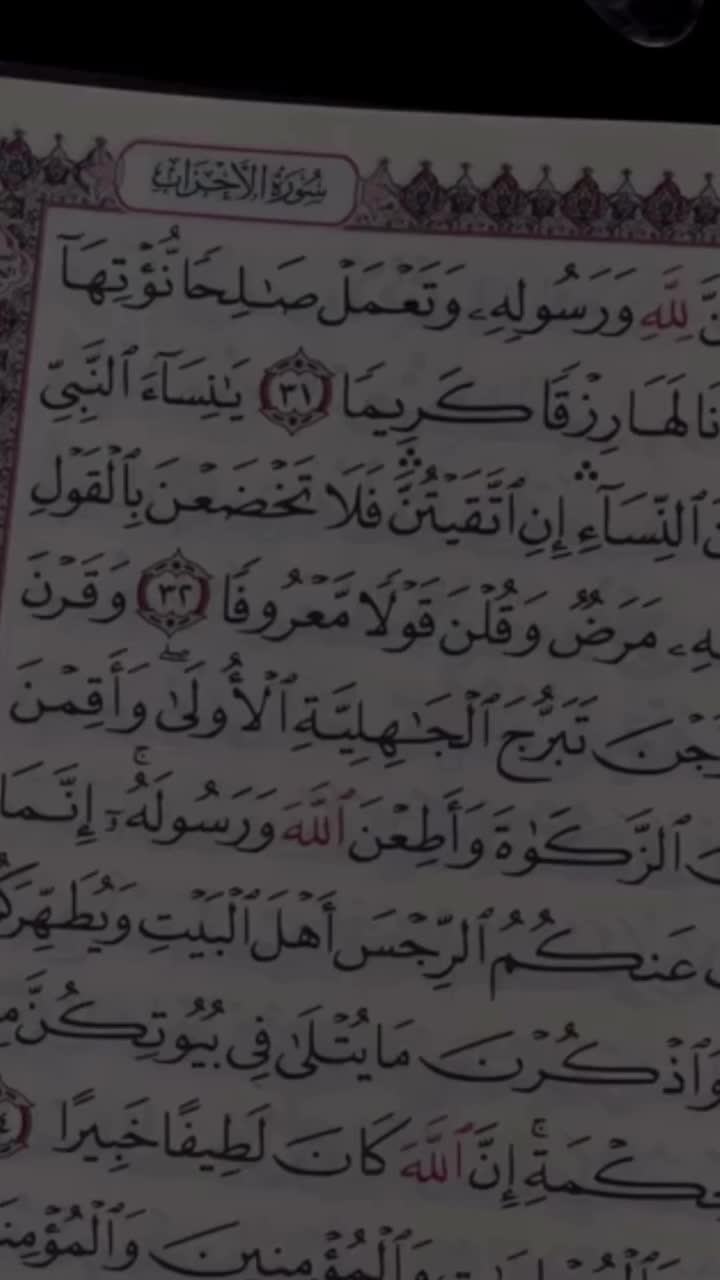 سُورَةُ الأَحْزَابِ
لِلَّهِ وَرَسُولِهِۦ وَتَعْمَلْ صَٰلِحًا نُّؤْتِهَآ
لَهَا رِزْقًا كَرِيمًا ٣١ يَٰنِسَآءَ ٱلنَّبِىِّ
ٱلنِّسَآءِ إِنِ ٱتَّقَيْتُنَّ فَلَا تَخْضَعْنَ بِٱلْقَوْلِ
مَرَضٌ وَقُلْنَ قَوْلًا مَّعْرُوفًا ٣٢ وَقَرْنَ
تَبَرُّجَ ٱلْجَٰهِلِيَّةِ ٱلْأُولَىٰ وَأَقِمْنَ
ٱلزَّكَوٰةَ وَأَطِعْنَ ٱللَّهَ وَرَسُولَهُۥٓ ۚ إِنَّمَا
عَنكُمُ ٱلرِّجْسَ أَهْلَ ٱلْبَيْتِ وَيُطَهِّرَكُ
وَٱذْكُرْنَ مَا يُتْلَىٰ فِى بُيُوتِكُنَّ
إِنَّ ٱللَّهَ كَانَ لَطِيفًا خَبِيرًا
وَٱلْمُؤْمِنِينَ